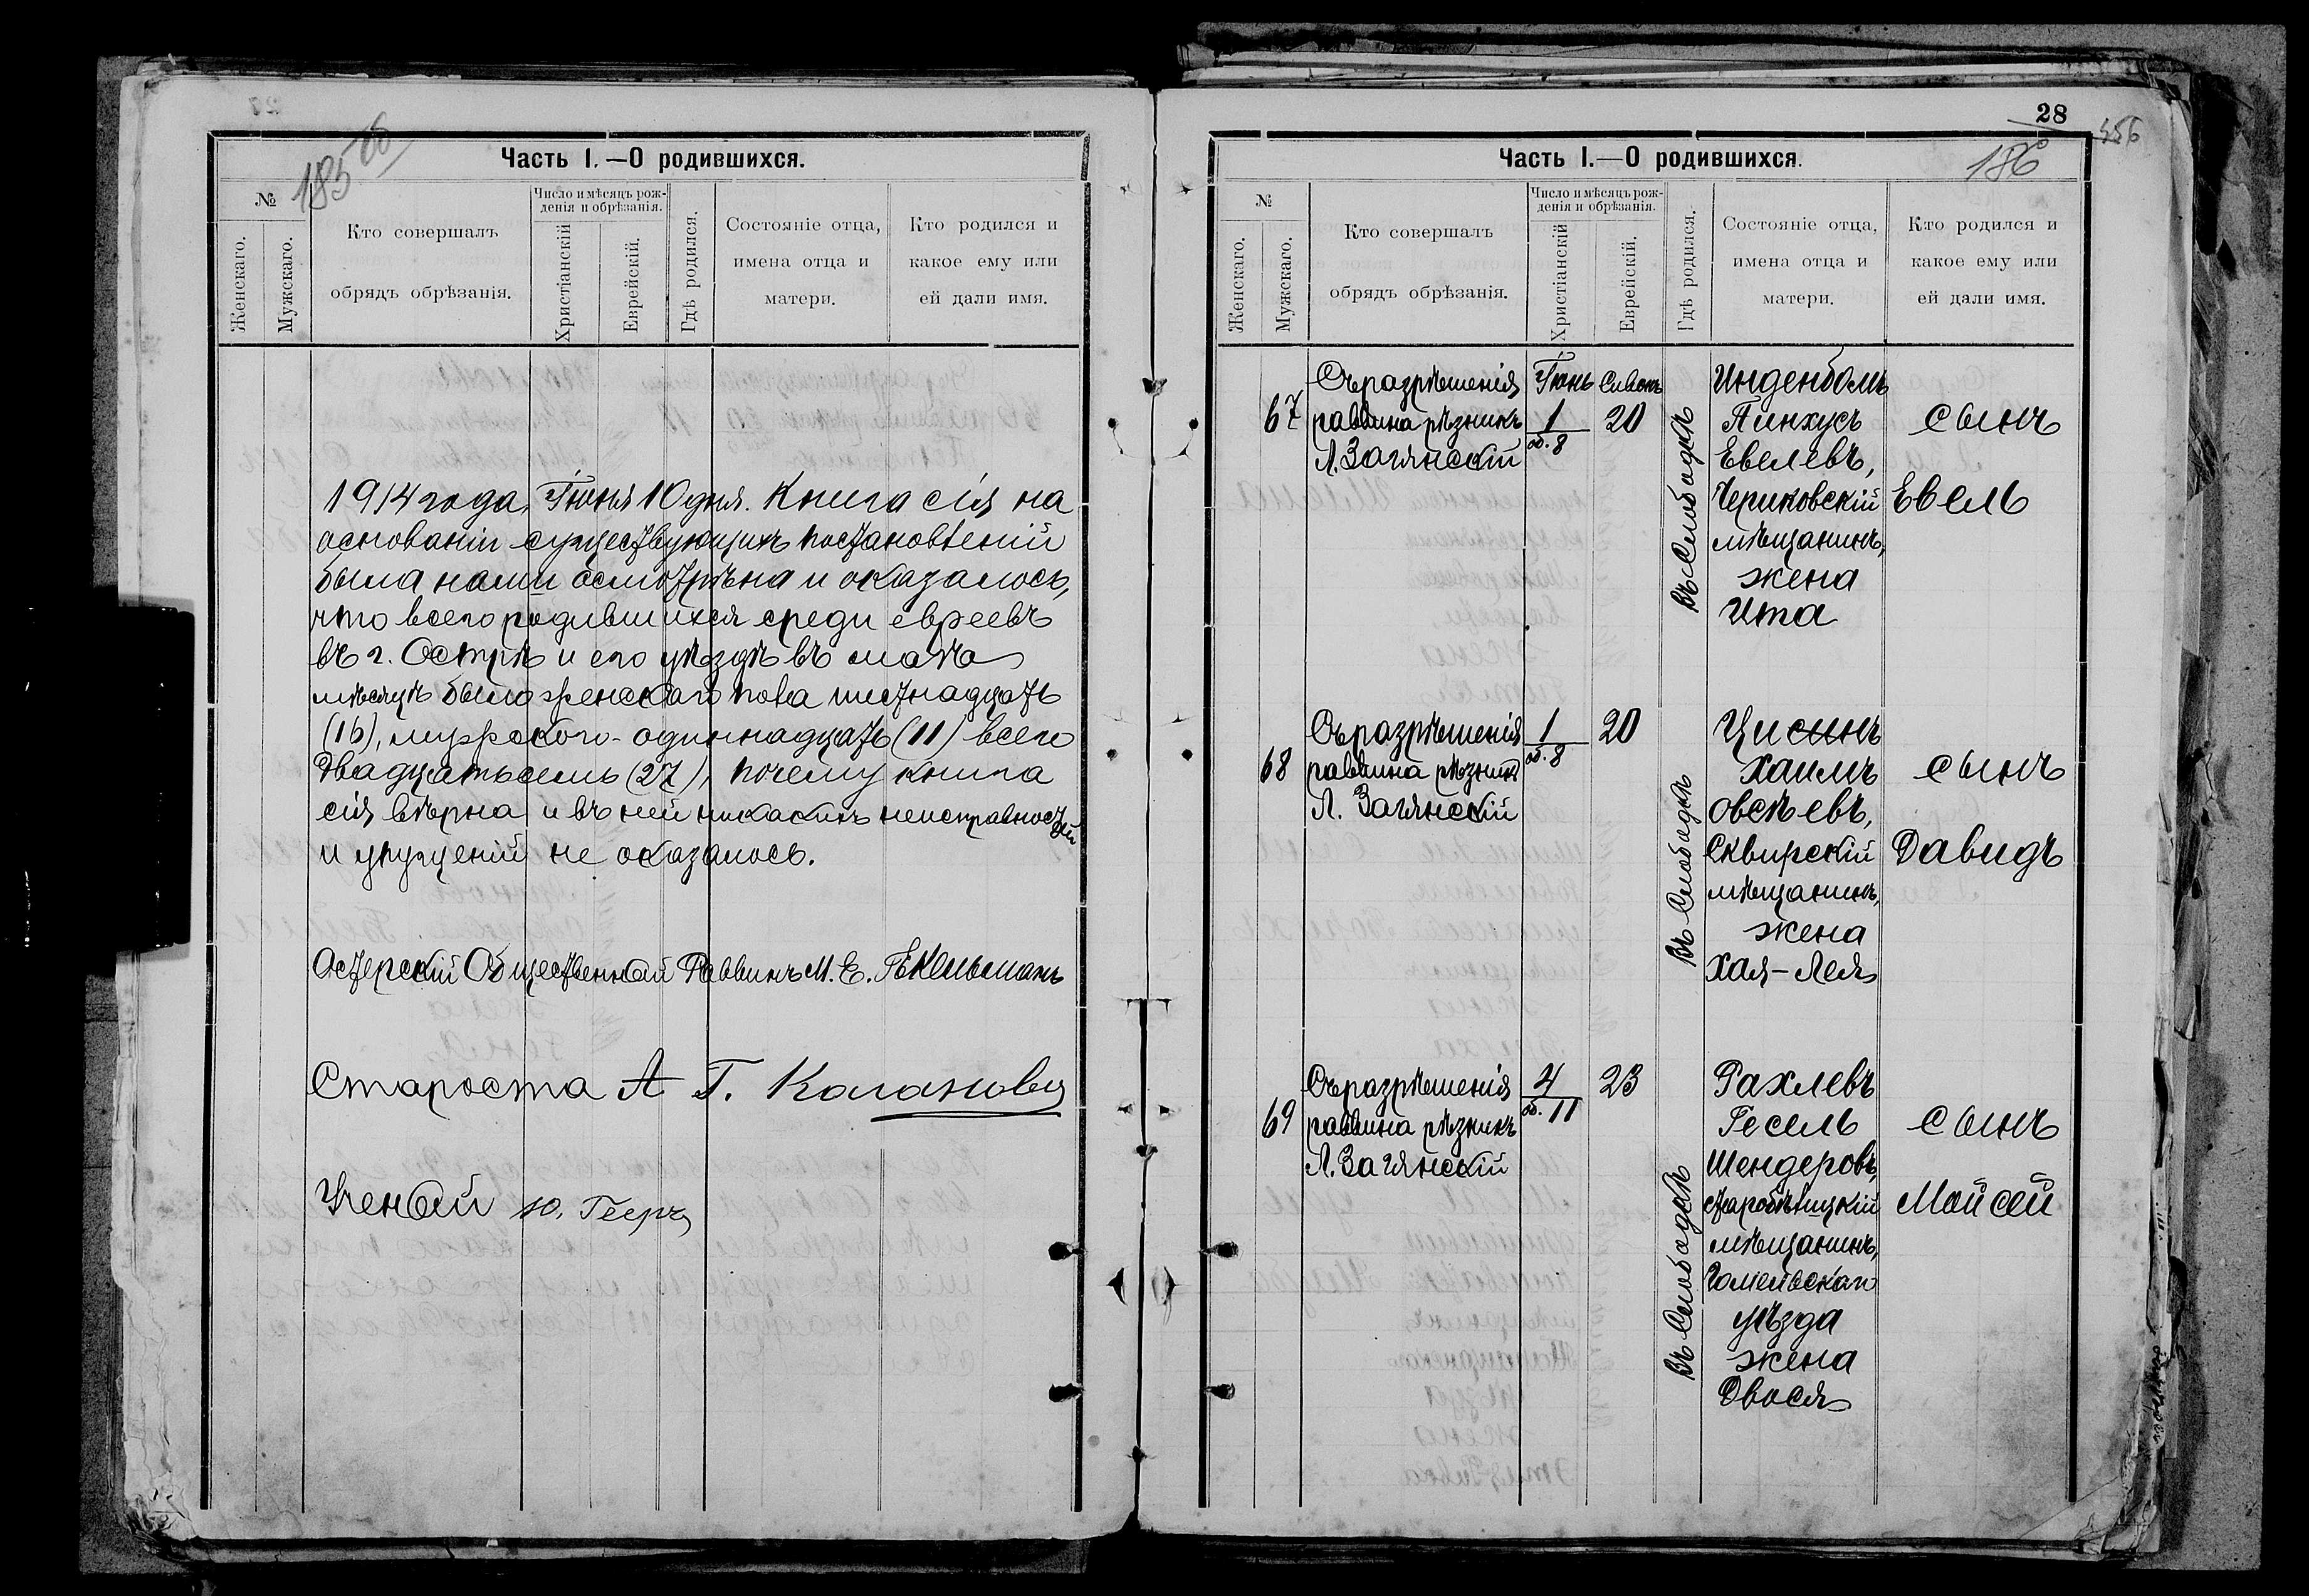 185 об
Часть I.—О родившихся.
№
Женскаго.
Мужскаго.
Кто совершалъ
обрядъ обрѣзанія.
Число и мѣсяцъ рож-
денія и обрѣзанія.
Христіанскій
Еврейскій.
Гдѣ родился.
Состояніе отца,
имена отца и
матери.
Кто родился и
какое ему или
ей дали имя.
1914 года, Іюня 10 дня. Книга сія на
основаніи существующихъ постановленій
была нами осмотрѣна и оказалось,
что всего родившихся среди евреевъ
въ г. Острѣ и его уѣздѣ въ маѣ
мѣсяцѣ было женскаго пола шестнадцать
(16), мужского - одиннадцать (11) всего
двадцать семь (27), почему книга
сія вѣрна и въ ней никакихъ неисправностей
и упущеній не оказалось.
Остерскій Общественный Раввинъ М. Е.
Староста А Г.
Ученый Ю.
28
186
356
Часть I.—О родившихся.
№
Женскаго.
Мужскаго.
Кто совершалъ
обрядъ обрѣзанія.
Число и мѣсяцъ рож-
денія и обрѣзанія.
Христіанскій
Еврейскій.
Гдѣ родился.
Состояніе отца,
имена отца и
матери.
Кто родился и
какое ему или
ей дали имя.
67
Съ разрѣшенія
раввина рѣзникъ
Л. Загянскій
Іюнь
1
об. 8
Сивонъ
20
Въ Слободкѣ
Инденбомъ
Пинхусъ
Евелевъ,
Чериковскій
мѣщанинъ,
жена
Ита
сынъ
Евель
68
Съ разрѣшенія
раввина рѣзникъ
Л. Загянскій
1
об. 8
20
Въ Слободкѣ
Цисинъ
Хаимъ
Овсѣевъ,
Сквирскій
мѣщанинъ,
жена
Хая-Лея
сынъ
Давидъ
69
Съ разрѣшенія
раввина рѣзникъ
Л. Загянскій
4
об. 11
23
Въ Слободкѣ
Рахлевъ
Гесель
Шендеровъ,
старобѣлицкій
мѣщанинъ,
Гомельскаго
уѣзда
жена
Двося
сынъ
Мойсей